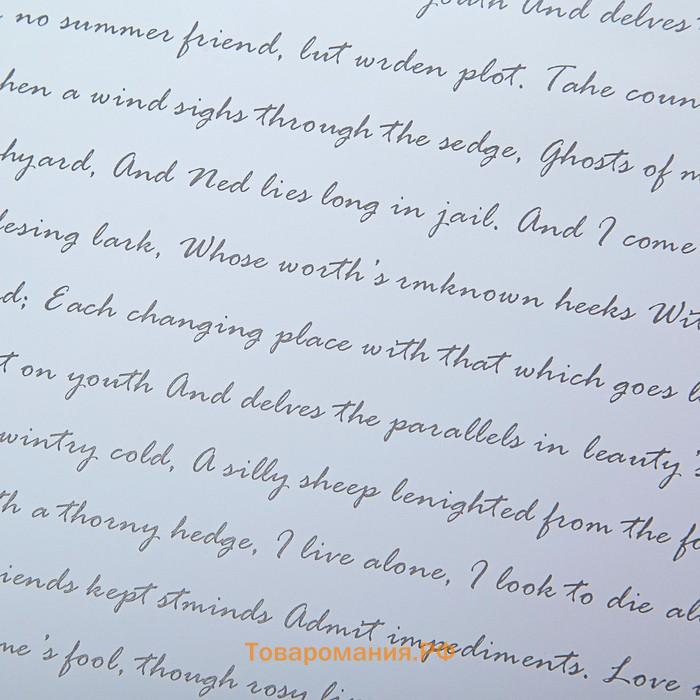 youth And delves
no summer friend, lut wrden plot. Tahe coun
hen a wind sighs through the sedge, Ghosts of m
hyard, And Ned lies long in jail. And I come
lesing lark, Whose worth's rmknown heeks Wit
d; Each changing place with that which goes l
t on youth And delves the parallels in leauty's
wintry cold, A silly sheep lenighted from the fo
th a thorny hedge, I live alone, I look to die al
iends kept stminds Admit impediments. Love
me's fool, though rosy li
Товаромания.РФ